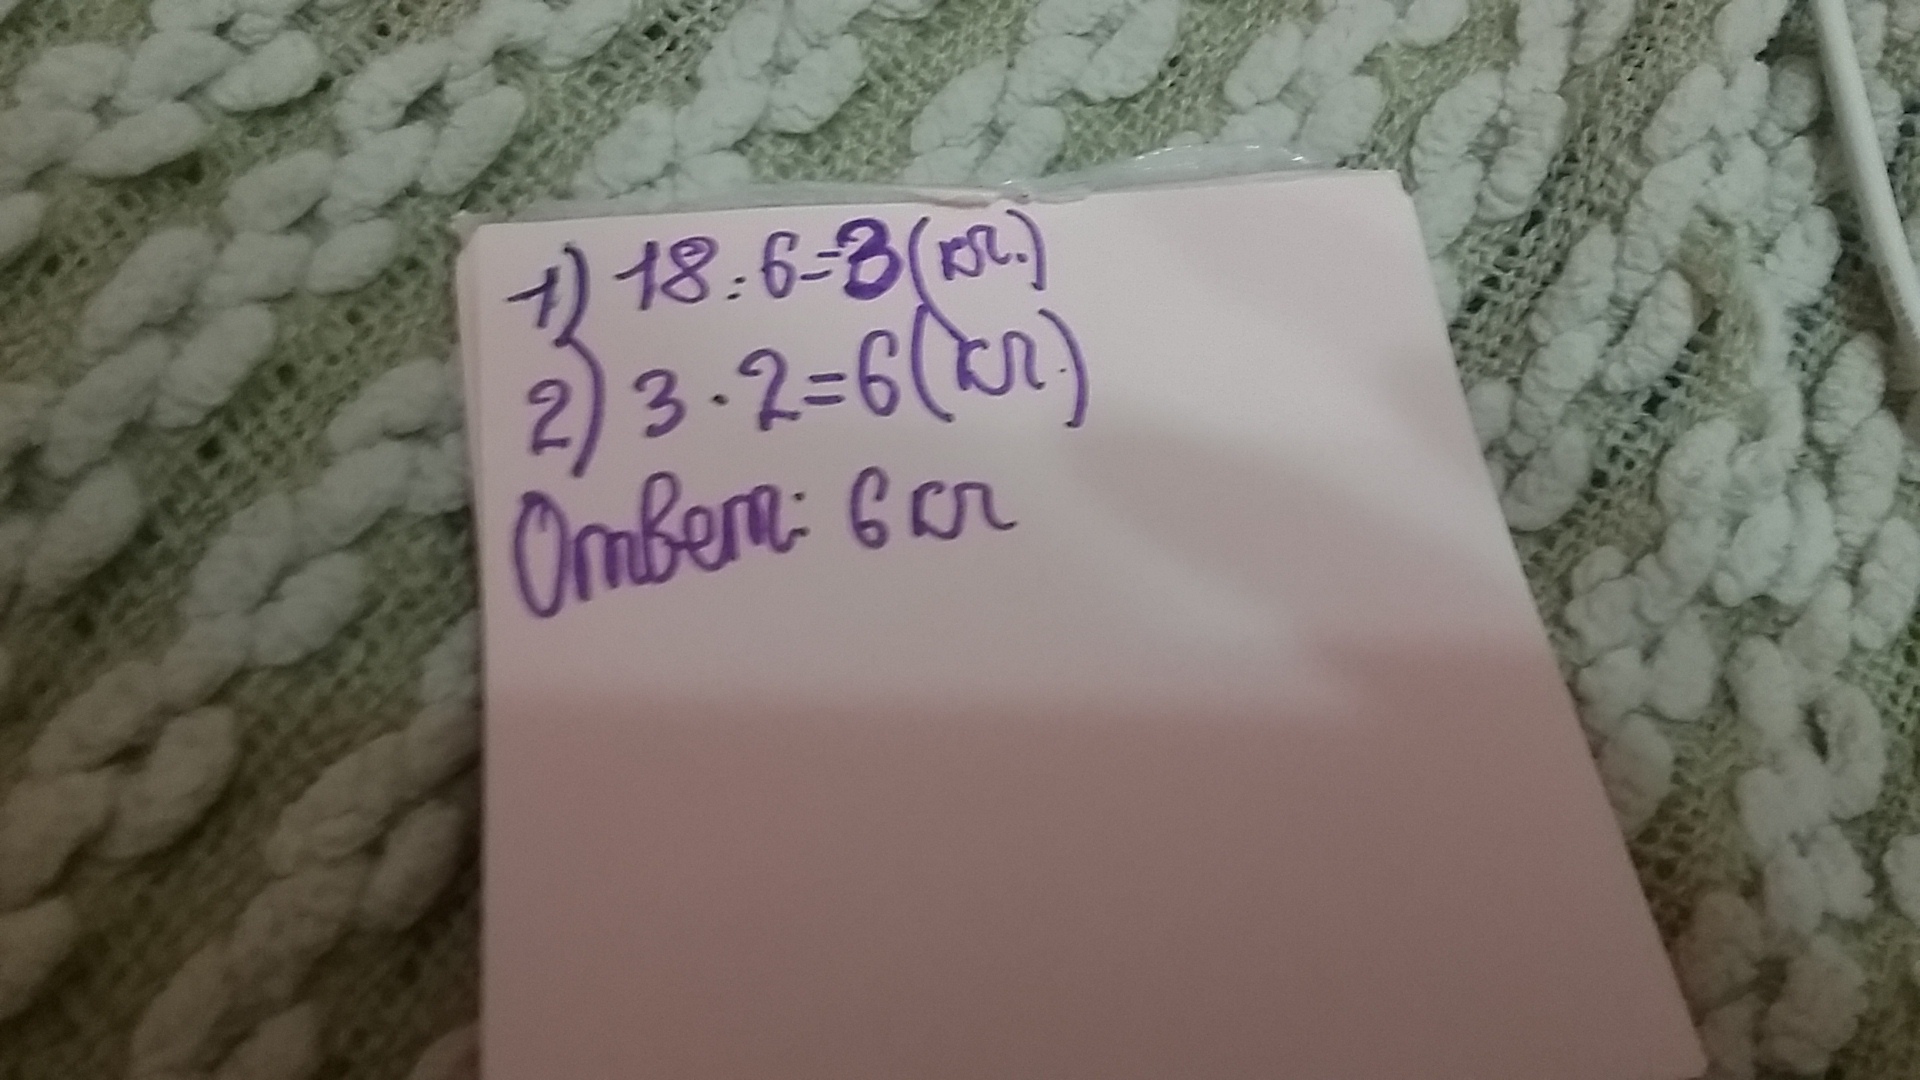 1) 18:6=3(кг.)
2) 3·2=6(кг.)
Ответ: 6 кг